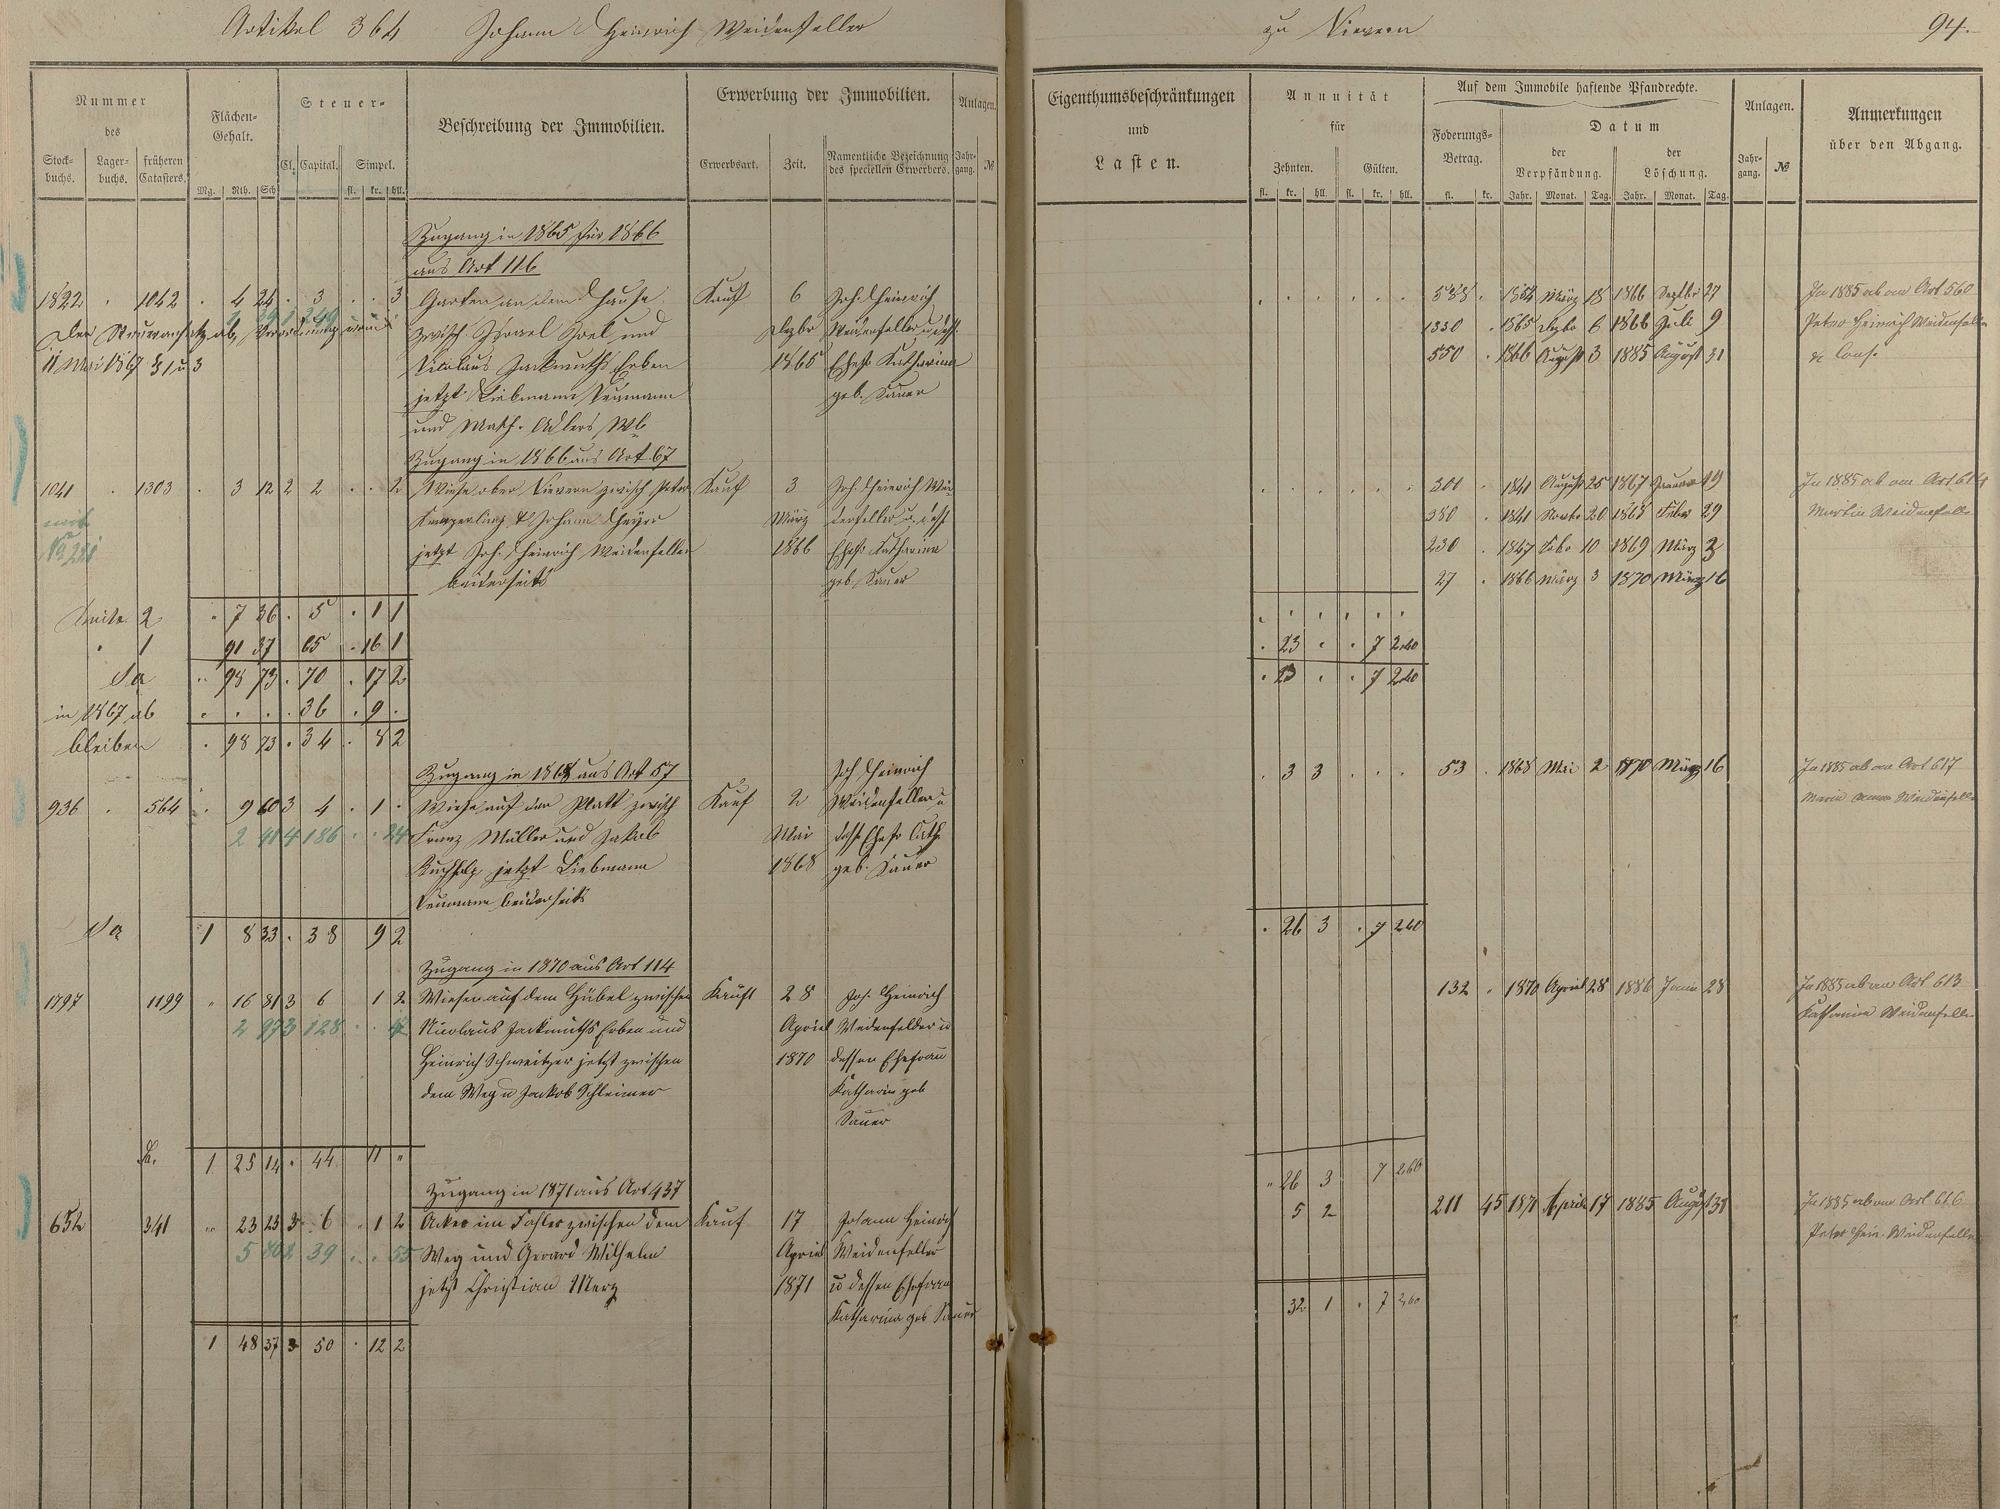 Artikel 364 Johann Heinrich Weidenfeller
zu Nievern
94.
Nummer
des
Stock-
buchs.
Lager-
buchs.
früheren
Catasters.
Flächen-
Gehalt.
Mg. Rth. Sch
Steuer-
Cl. Capital. Simpel.
fl. kr. hll.
Beschreibung der Immobilien.
Erwerbung der Immobilien.
Erwerbsart. Zeit.
Namentliche Bezeichnung
des speciellen Erwerbers.
Anlagen.
Jahr-
gang. №
Eigenthumsbeschränkungen
und
Lasten.
Annuität
für
Zehnten. Gülten.
fl. kr. hll. fl. kr. hll.
Auf dem Immobile haftende Pfandrechte.
Foderungs-
Betrag.
fl. kr.
Datum
der
Verpfändung.
Jahr. Monat. Tag.
der
Löschung.
Jahr. Monat. Tag.
Anlagen.
Jahr-
gang. №
Anmerkungen
über den Abgang.
Zugang in 1865 für 1866
aus Art 116
1822 . 1042 . 4 24 . 3 . . 3 Garten an dem Hause Kauf 6 Joh. Heinrich
zwisch Israel Joel und Dezbr Weidenfeller u dess.
11 Mai 1867 § 1 u 3 Nicolaus Jackmuths Erben 1865 Ehefr Katharina
jetzt Liebmann Neumann geb. Sauer
und Math. Adlers Wb
588 . 1854 März 18 1866 Septbr 27 In 1885 ab an Art 560
1330 . 1865 Dezbr 6 1866 Juli 9 Peter Heinrich Weidenfeller
550 . 1866 August 3 1885 August 31 & Cons.
Zugang in 1866 aus Art. 67
1041 . 1303 . 3 12 2 2 . . 2 Wiese ober Nievern zwisch Peter Kauf 3 Joh. Heinrich Wei
& Johann Heyer März denfeller u. dess
jetzt Joh. Heinrich Weidenfeller 1866 Ehefr Katharina
beiderseits geb. Sauer
mit
No 251
301 . 1841 August 25 1867 Januar 19 In 1885 ab an Art 614
380 . 1841 Novbr 20 1868 Febr 29 Martin Weidenfeller
230 . 1847 Febr 10 1869 März 3
27 . 1866 März 3 1870 März 16
Seite 2 . 7 36 . 5 . 1 1
" 1 91 37 65 . 16 1 . 23 . . 7 2.40
Sa . 98 73 . 70 . 17 2 . 23 . . 7 2.40
in 1867 ab . . . . 36 . 9 .
bleiben . 98 73 . 34 . 8 2
Zugang in 1868 aus Art 57
936 . 564 . 9 60 3 4 . 1 . Wiese auf dem Platt zwisch Kauf 2 Joh Heinrich
2 41 4 186 . . 24 Franz Müller und Jakob Mai Weidenfeller u
Buchholz jetzt Liebmann 1868 dess Ehefr Cath.
Neumann beiderseits geb. Sauer
. 3 3 . . . 53 . 1868 Mai 2 1870 März 16 In 1885 ab an Art 617
Maria Anna Weidenfeller
Sa 1 8 33 . 38 9 2 . 26 3 . 7 2.40
Zugang in 1870 aus Art 114
1797 1199 " 16 81 3 6 1 2 Wiesen auf dem Hübel zwischen Kauft 28 Joh. Heinrich
2 97 3 128 . . Nicolaus Jackmuths Erben und April Weidenfelder u
Heinrich Schweitzer jetzt zwischen 1870 dessen Ehefrau
dem Weg u Jackob Schleimer Katharin geb
Sauer
132 . 1870 April 28 1886 Janu 28 In 1885 ab an Art 613
Katharina Weidenfeller
Sa. 1 25 14 . 44 11 " " 26 3 7 2.60
Zugang in 1871 aus Art 437
652 341 " 23 23 3 6 . 1 2 Acker im Fahler zwischen dem Kauf 17 Johann Heinrich
39 . . 55 Weg und Gerard Wilhelm April Weidenfeller
jetzt Christian Merz 1871 u dessen Ehefrau
Katharina geb Sauer
5 2 211 45 1871 April 17 1885 August 31 In 1885 ab an Art 616
Peter Hein. Weidenfeller
32 1 . 7 2.60
1 48 37 3 50 . 12 2